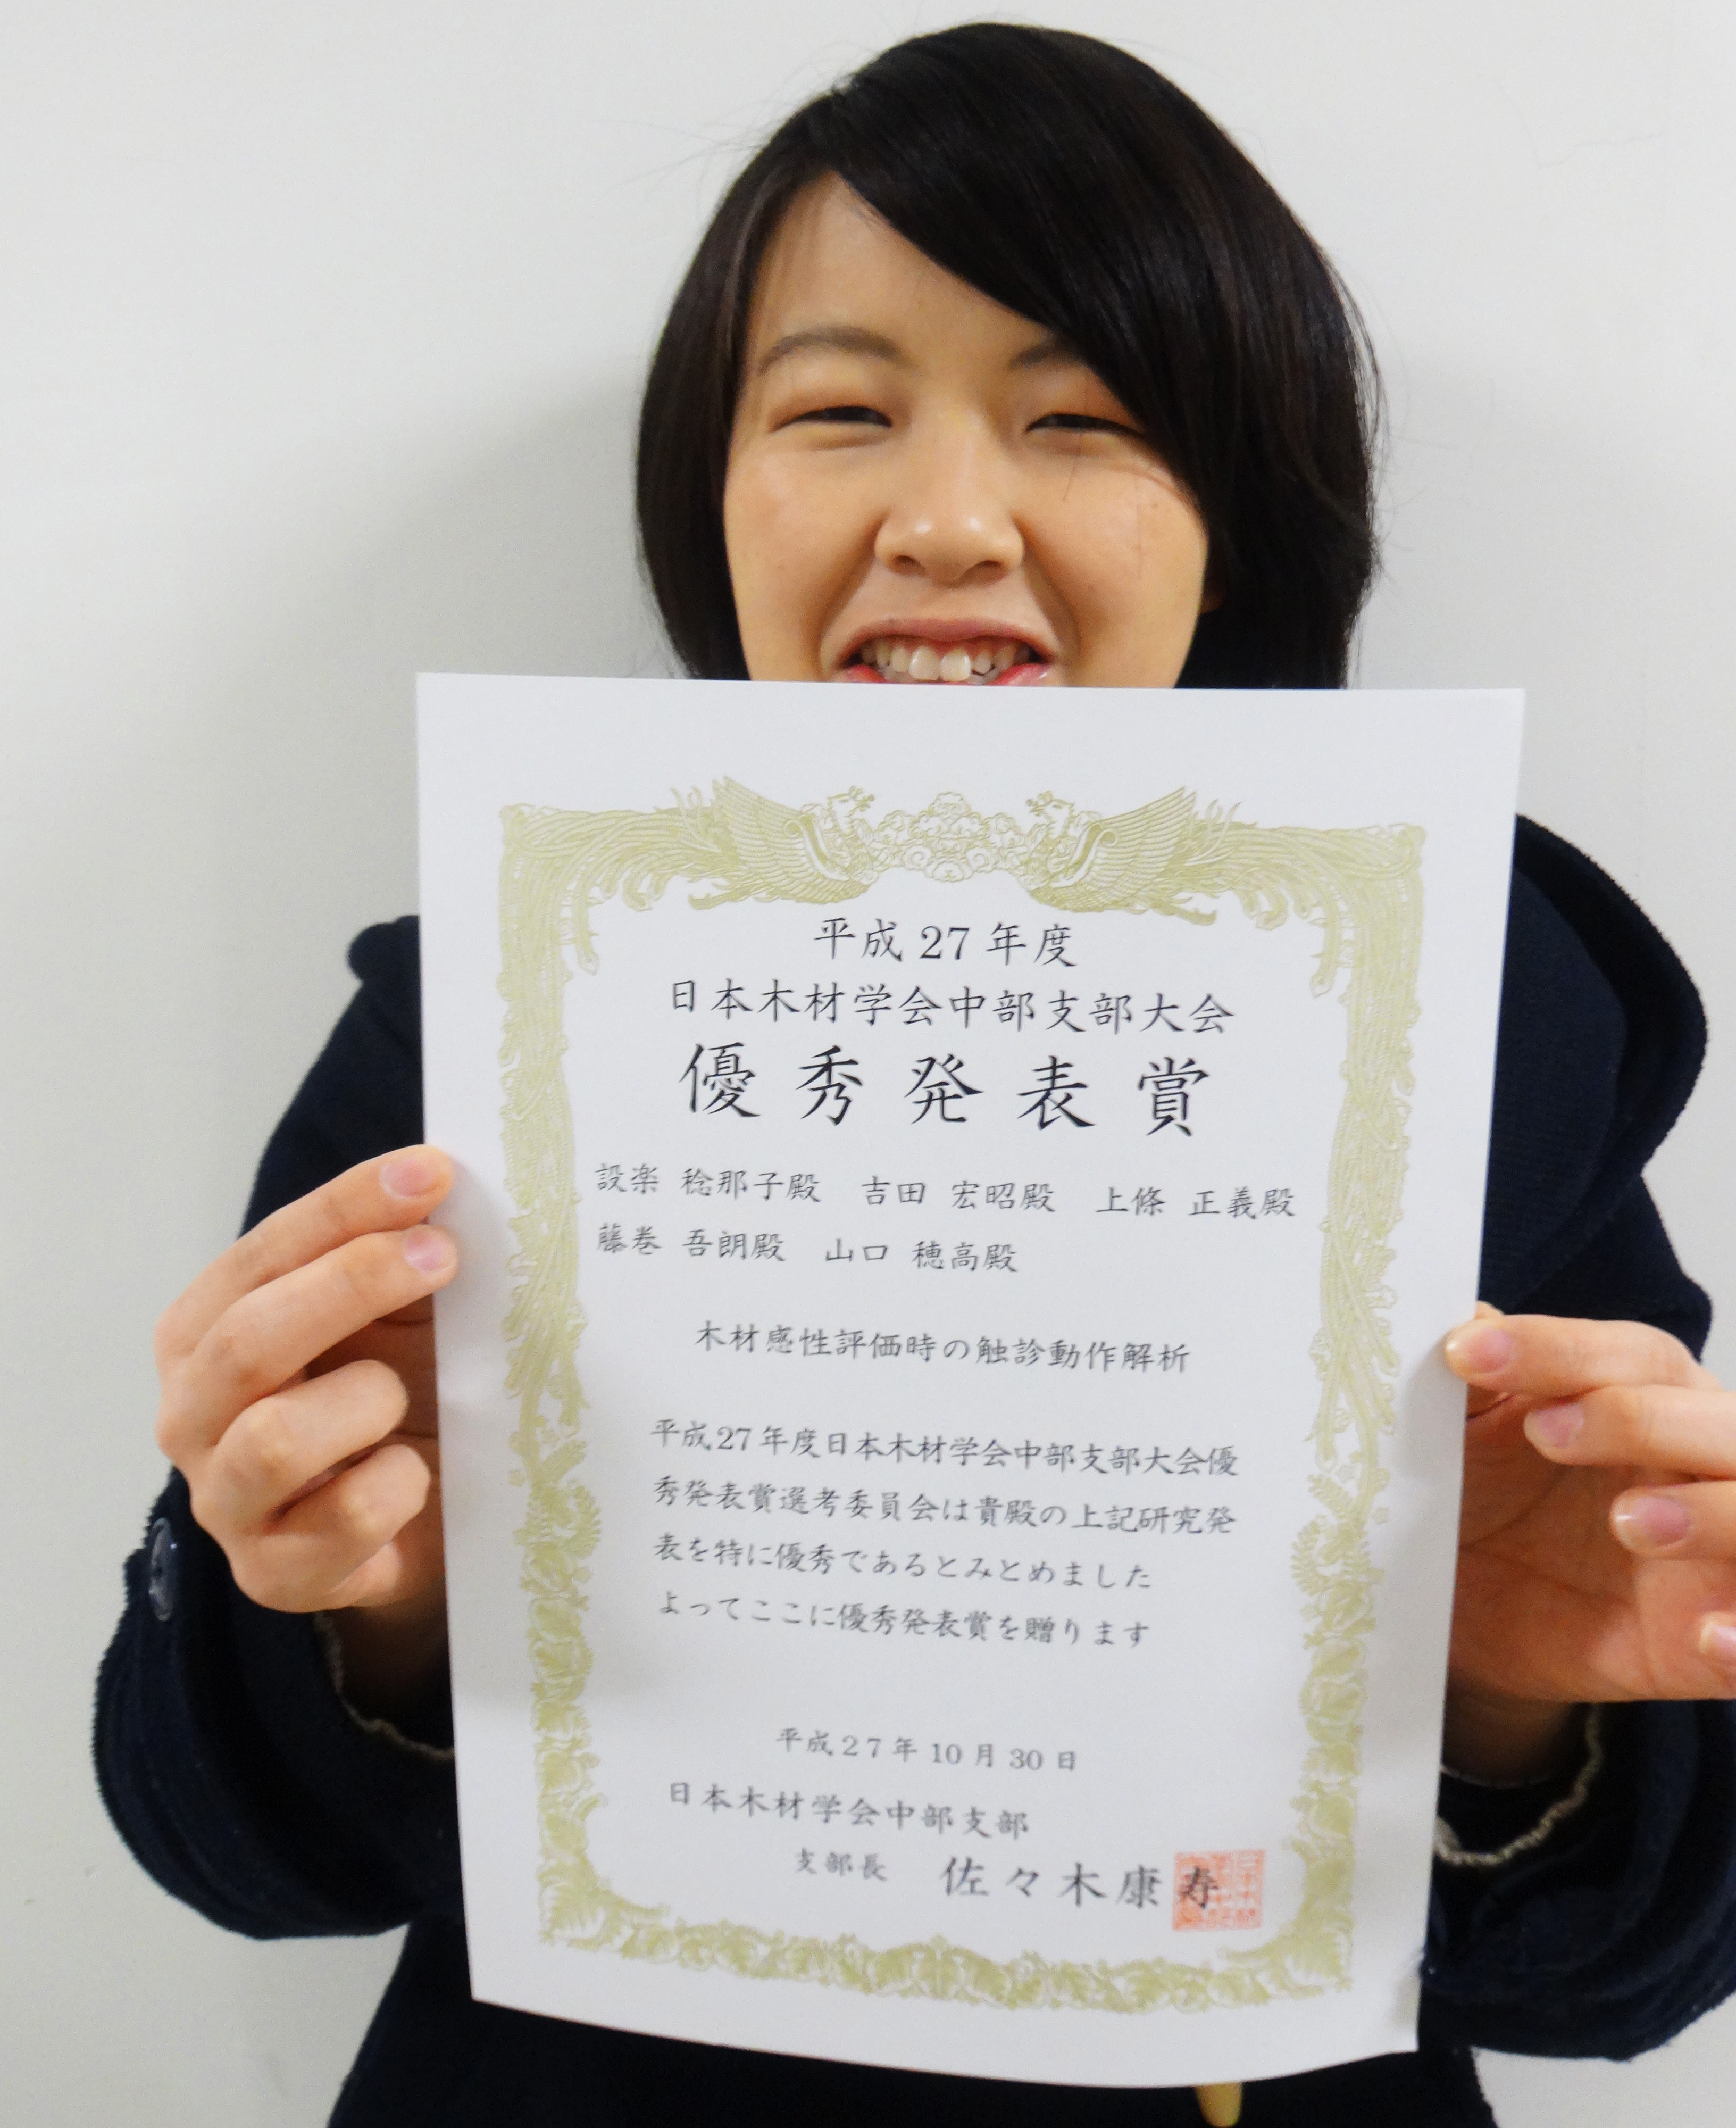 平成 27 年度
日本木材学会中部支部大会
優秀発表賞
設楽 稔那子殿 吉田 宏昭殿 上條 正義殿
藤巻 吾朗殿 山口 穂高殿
木材感性評価時の触診動作解析
平成27年度日本木材学会中部支部大会優
秀発表賞選考委員会は貴殿の上記研究発
表を特に優秀であるとみとめました
よってここに優秀発表賞を贈ります
平成27年10月30日
日本木材学会中部支部
支部長 佐々木康寿